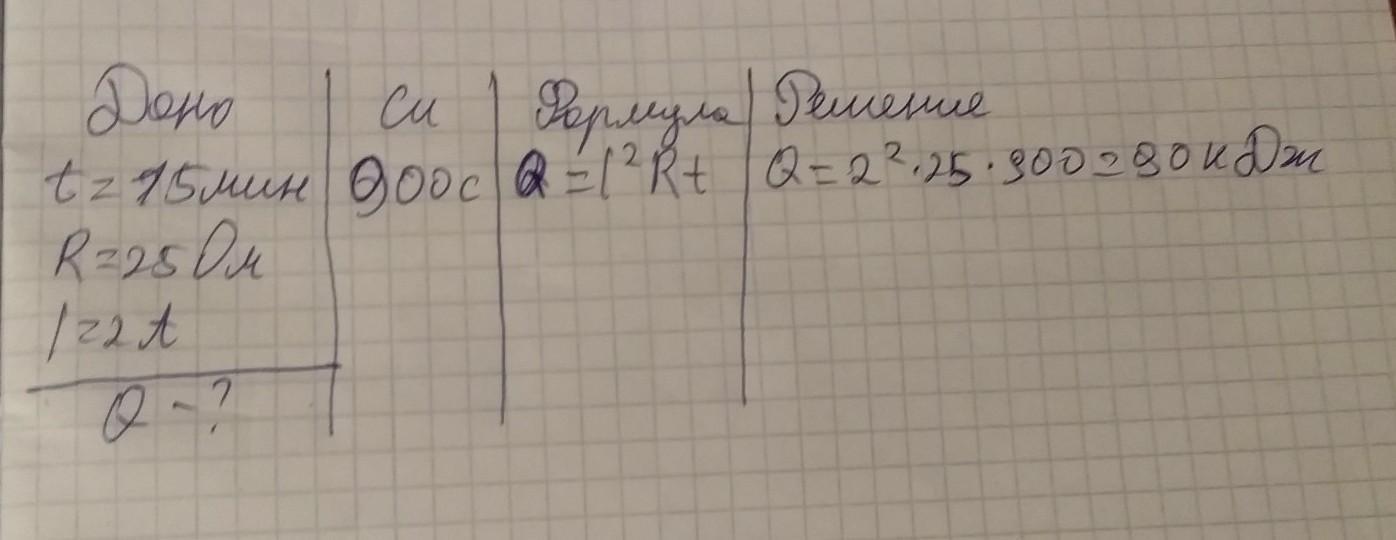 Дано Си Формула Решение
t=15мин 900с Q=I²Rt Q=2²·25·900=90кДж
R=25Ом
I=2А
Q-?